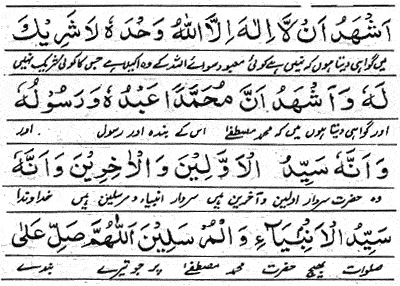 اَشْهَدُ اَنْ لَّا اِلٰهَ اِلَّا اللّٰهُ وَحْدَهٗ لَا شَرِيْكَ
میں گواہی دیتا ہوں کہ نہیں ہے کوئی معبود سوائے اللہ کے وہ اکیلا ہے جس کا کوئی شریک نہیں
لَهٗ وَاَشْهَدُ اَنَّ مُحَمَّدًا عَبْدُهٗ وَرَسُوْلُهٗ
اور گواہی دیتا ہوں میں کہ محمد مصطفےٰ اس کے بندہ اور رسول . اور
وَاَنَّهٗ سَيِّدُ الْاَوَّلِيْنَ وَالْاٰخِرِيْنَ وَاَنَّهٗ
وہ حضرت سردار اولین و آخرین ہیں سردار انبیاء و مرسلین ہیں خداوندا
سَيِّدُ الْاَنْبِيَآءِ وَالْمُرْسَلِيْنَ اَللّٰهُمَّ صَلِّ عَلٰى
صلوات بھیج حضرت محمد مصطفےٰ پر جو تیرے بندے